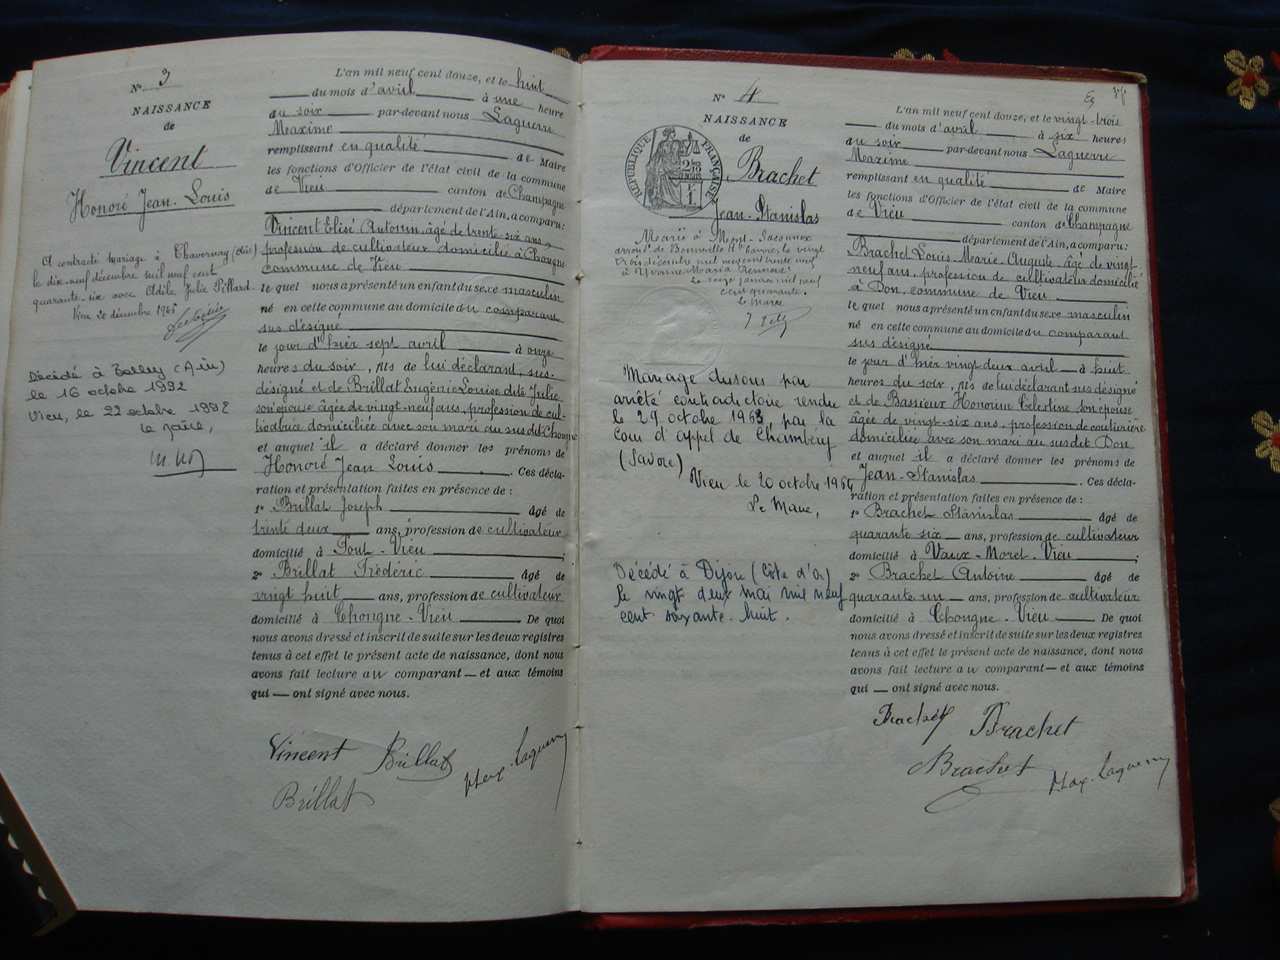 N° 3
NAISSANCE
de
Vincent
Honoré Jean-Louis
A contracté mariage à
le dix-neuf décembre mil neuf cent
quarante-six avec Adèle Julie
Vieu 20 décembre
Décédé à Belley (Ain)
le 16 octobre 1992
Vieu, le 22 octobre 1992
le Maire,
L'an mil neuf cent douze, et le huit
du mois d'avril à une heure
du soir par-devant nous Laguerre
Maxime
remplissant en qualité de Maire
les fonctions d'Officier de l'état civil de la commune
de Vieu canton de Champagne
département de l'Ain, a comparu:
Vincent Elisé Antonin, âgé de trente-six ans,
profession de cultivateur domicilié à Chongne
commune de Vieu
le quel nous a présenté un enfant du sexe masculin
né en cette commune au domicile du comparant
sus désigné
le jour d'hier sept avril à onze
heures du soir, fils de lui déclarant, sus-
désigné et de Brillat Eugénie Louise dite Julie
son épouse âgée de vingt-neuf ans, profession de cul-
tivatrice domiciliée avec son mari au sus dit Chongne
et auquel il a déclaré donner les prénoms de
Honoré Jean Louis . Ces décla-
ration et présentation faites en présence de :
1° Brillat Joseph âgé de
trente deux ans, profession de cultivateur
domicilié à Pont-Vieu ;
2° Brillat Frédéric âgé de
vingt huit ans, profession de cultivateur
domicilié à Chongne-Vieu De quoi
nous avons dressé et inscrit de suite sur les deux registres
tenus à cet effet le présent acte de naissance, dont nous
avons fait lecture au comparant et aux témoins
qui ont signé avec nous.
Vincent Brillat Max. Laguerre
Brillat
N° 4
NAISSANCE
de
RÉPUBLIQUE FRANÇAISE
Brachet
Jean-Stanislas
Marié à
le vingt
trois décembre mil neuf cent trente neuf
à Yvonne Maria
le seize janvier mil neuf
cent quarante.
le Maire
Mariage dissous par
arrêté contradictoire rendu
le 29 octobre 1963, par la
Cour d'appel de Chambéry
(Savoie)
Vieu le 20 octobre 1964
Le Maire,
Décédé à Dijon (Côte d'Or)
le vingt deux mai mil neuf
cent soixante-huit.
L'an mil neuf cent douze, et le vingt-trois
du mois d'avril à six heures
du soir par-devant nous Laguerre
Maxime
remplissant en qualité de Maire
les fonctions d'Officier de l'état civil de la commune
de Vieu canton de Champagne
département de l'Ain, a comparu:
Brachet Louis Marie Auguste âgé de vingt
neuf ans, profession de cultivateur domicilié
à Don, commune de Vieu
le quel nous a présenté un enfant du sexe masculin
né en cette commune au domicile du comparant
sus désigné
le jour d'hier vingt deux avril à huit
heures du soir, fils de lui déclarant sus désigné
et de Bassieux Honorine Célestine son épouse
âgée de vingt-six ans, profession de couturière
domiciliée avec son mari au sus dit Don
et auquel il a déclaré donner les prénoms de
Jean-Stanislas . Ces décla-
ration et présentation faites en présence de :
1° Brachet Stanislas âgé de
quarante six ans, profession de cultivateur
domicilié à Vaux-Moret-Vieu ;
2° Brachet Antoine âgé de
quarante un ans, profession de cultivateur
domicilié à Chongne-Vieu De quoi
nous avons dressé et inscrit de suite sur les deux registres
tenus à cet effet le présent acte de naissance, dont nous
avons fait lecture au comparant et aux témoins
qui ont signé avec nous.
Brachet Brachet
Brachet Max. Laguerre